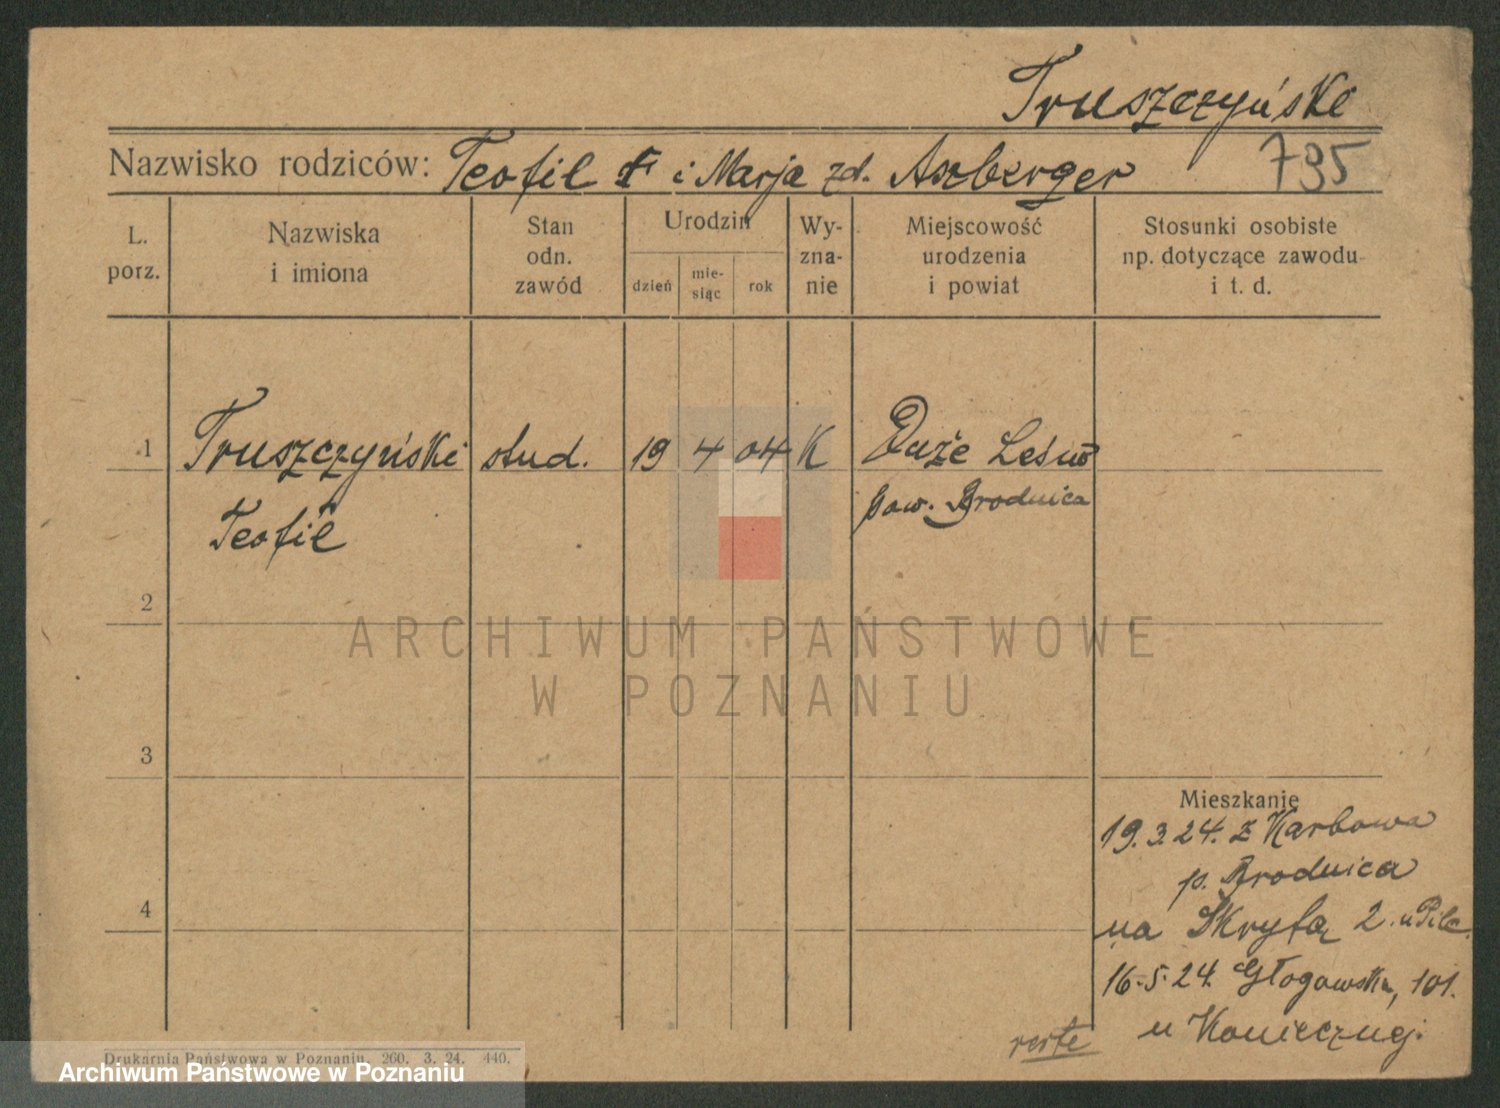 Truszczyński
Nazwisko rodziców: Teofil i Marja zd. Asxberger 795
L. porz.
Nazwiska i imiona
Stan odn. zawód
Urodzin
dzień
mie-siąc
rok
Wy-zna-nie
Miejscowość urodzenia i powiat
Stosunki osobiste np. dotyczące zawodu i t. d.
1 Truszczyński stud. 19 4 04 K Duże Leśno
Teofil pow. Brodnica
2
ARCHIWUM PAŃSTWOWE
W POZNANIU
3
Mieszkanie
19.3.24. z Karbowa
p. Brodnica
4
na Skryta 2. u Pilc.
16.5.24. Głogowska, 101.
u Koniecznej.
verte
Drukarnia Państwowa w Poznaniu. 260. 3. 24. 440.
Archiwum Państwowe w Poznaniu